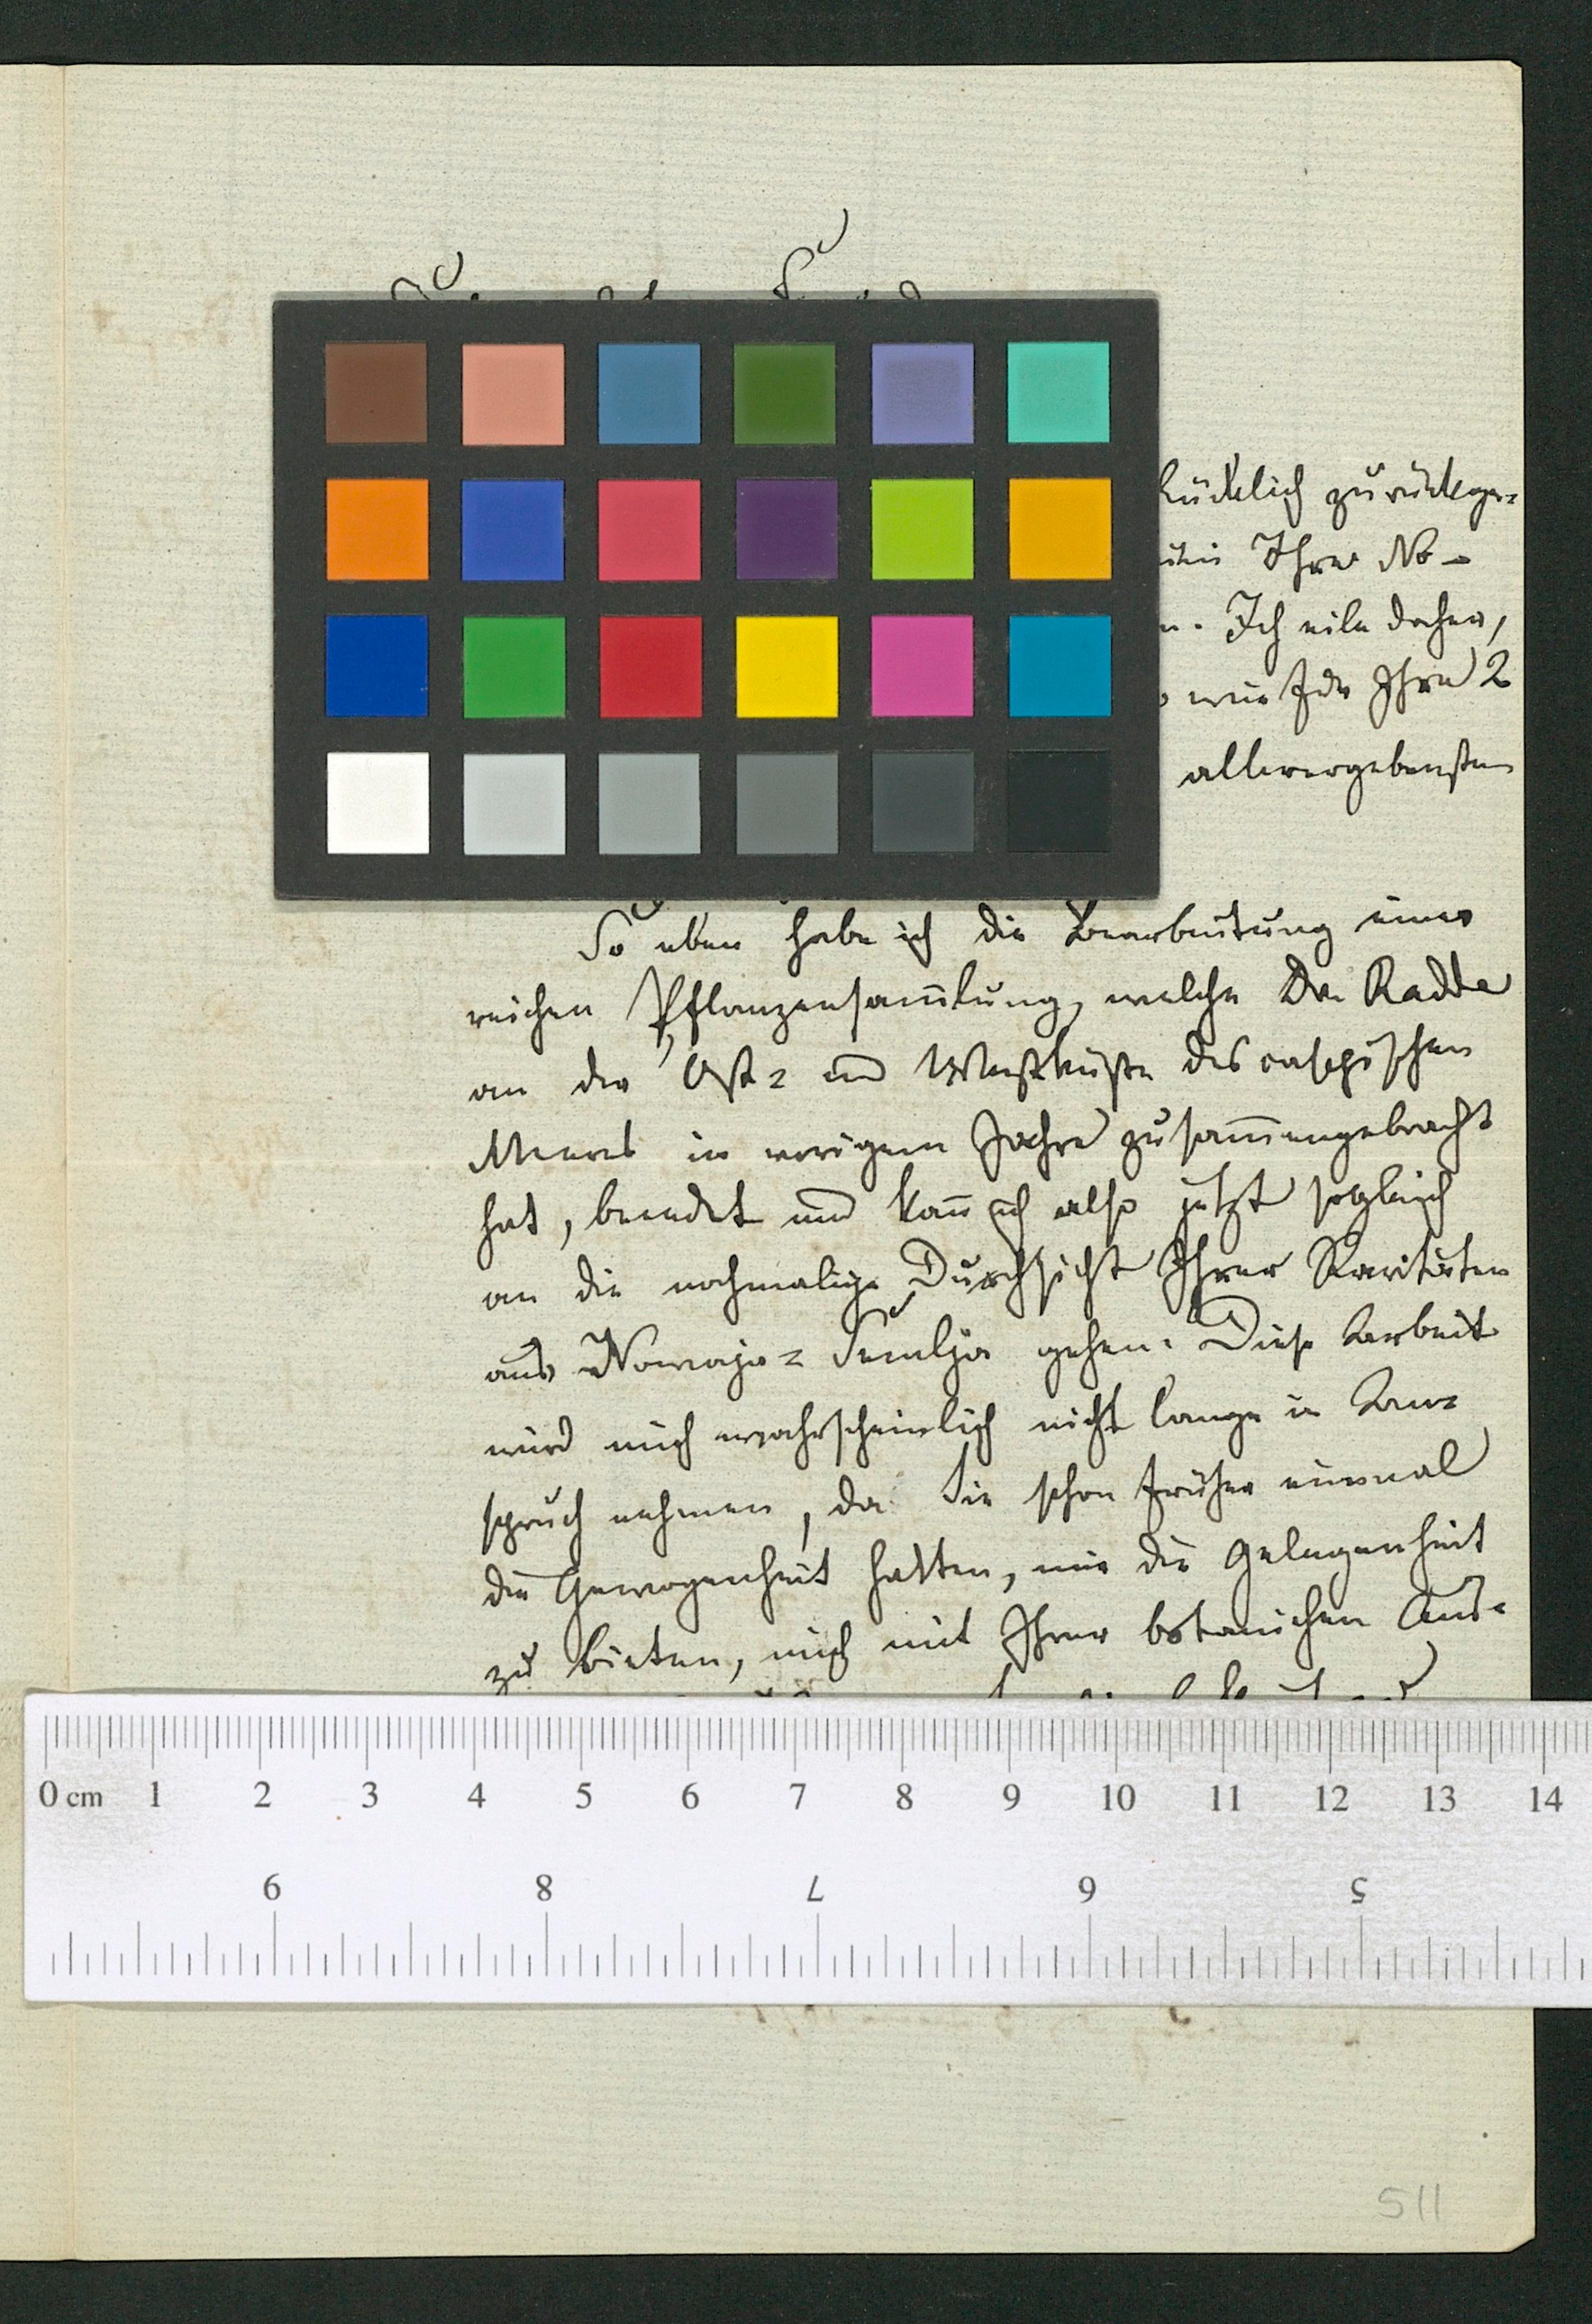 zurückge=
Ihre No-
Ich eile daher,
Ihre 2
allerergebensten
So eben habe ich die Bearbeitung einer
reichen Pflanzensam̅lung, welche Dr. Radde
an der Ost= und Westküste des caspischen
Meeres in vorigem Jahre zusam̅engebracht
hat, beendet und kan̅ ich also jetzt sogleich
an die nochmalige Durchsicht Ihrer Raritäten
aus Nowaja= Semlja gehen. Diese Arbeit
wird mich wahrscheinlich nicht lange in An=
spruch nehmen, da Sie schon früher einmal
die Gewogenheit hatten, mir die Gelegenheit
zu bieten, mich mit Ihrer botanischen Aus=
0 cm 1 2 3 4 5 6 7 8 9 10 11 12 13 14
9 8 7 6 5
511